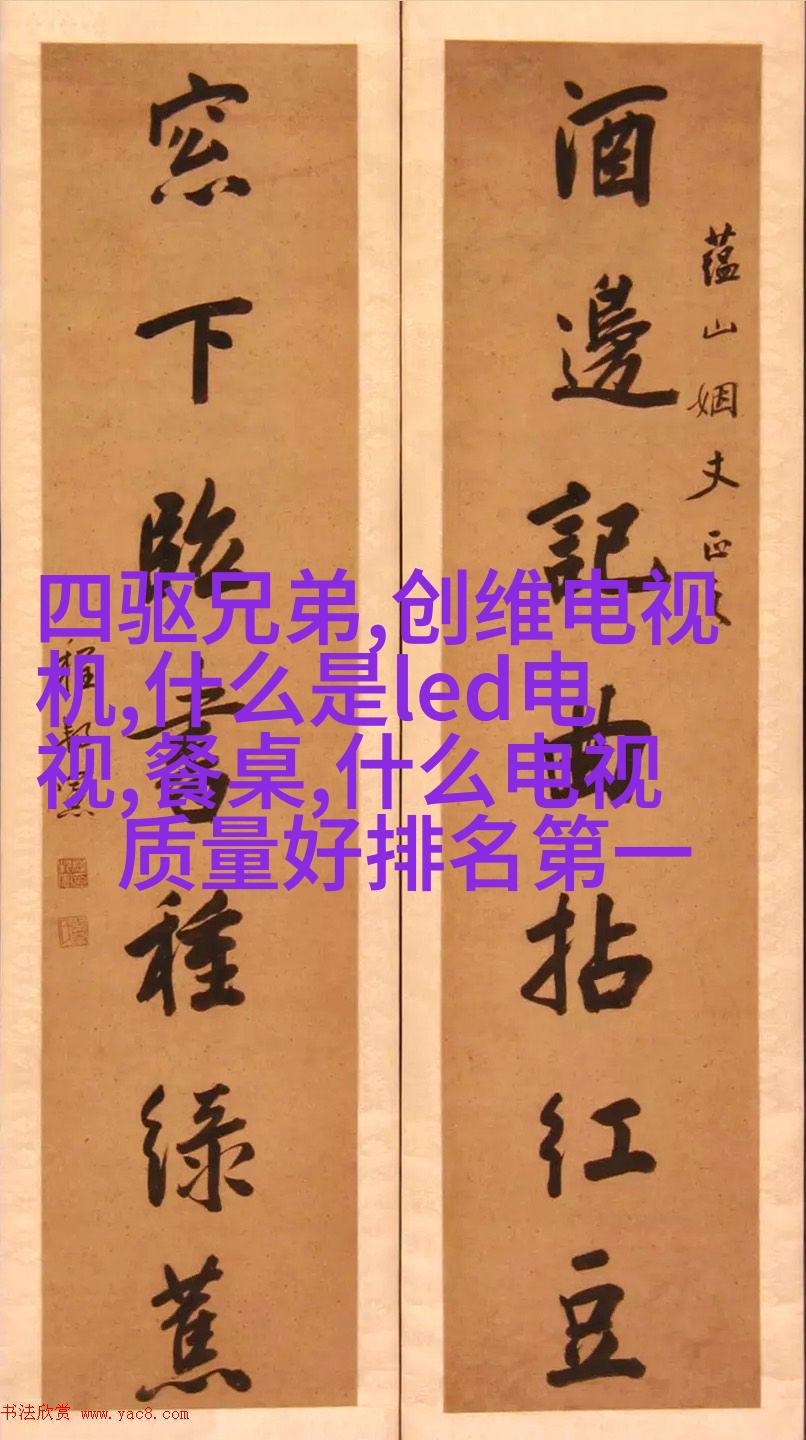 酒邊記曲拈紅豆
蕴山姻丈正
窓下臨書種綠蕉
程邦憲
四驱兄弟,创维电视
机,什么是led电
视,餐桌,什么电视
质量好排名第一
书法欣赏 www.yac8.com